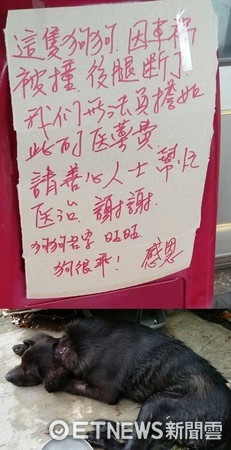 這隻狗狗因車祸
被撞後腿断了
我们無法負擔如
此的医藥費
請善心人士幫忙
医治 謝謝.
狗狗名字 旺旺
狗很乖! 感恩
ETNEWS新聞雲